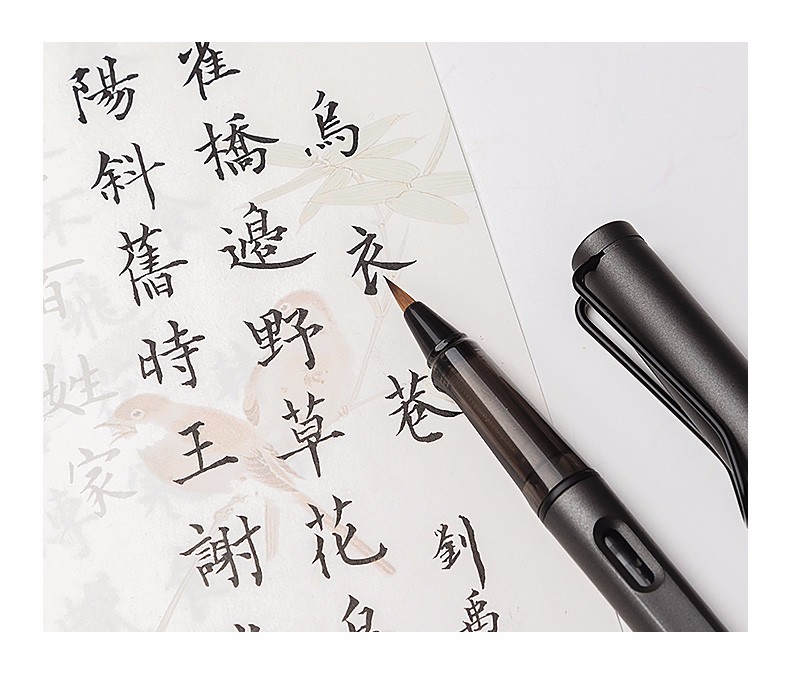 烏衣巷 劉禹
雀橋邊野草花
陽斜舊時王謝
百姓家